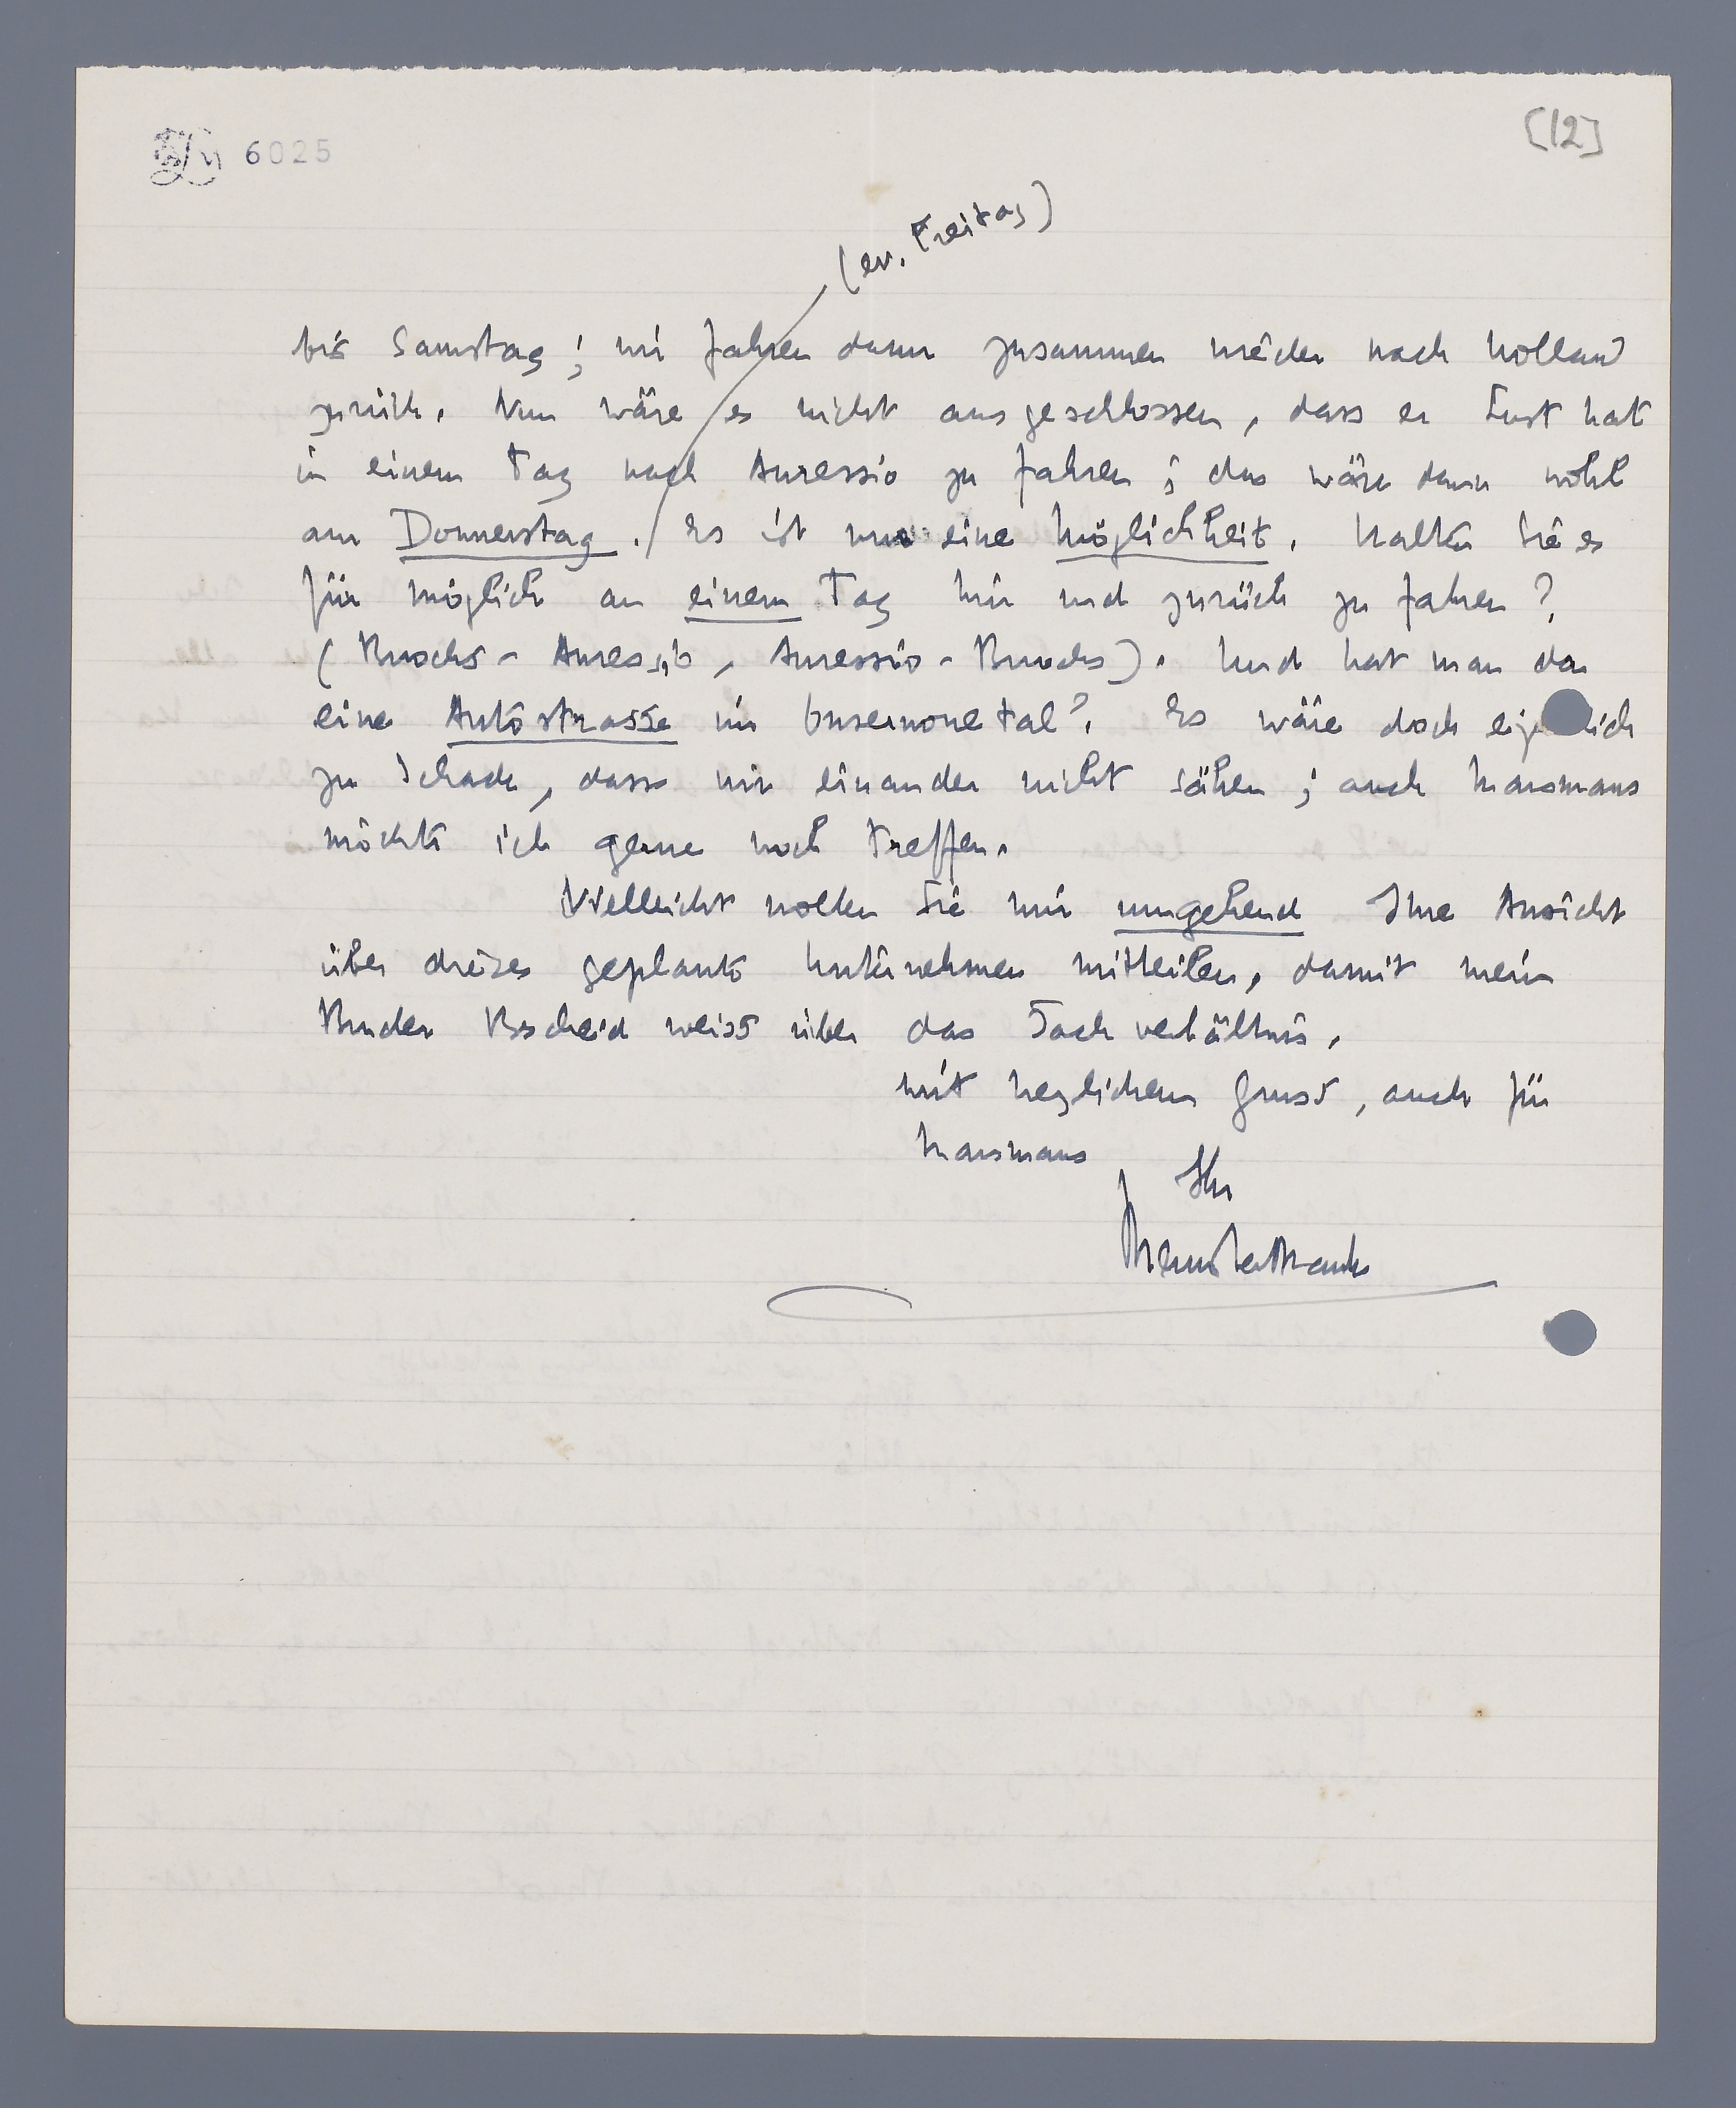 6025
[12]
(ev. Freitag)
bis Samstag; wir fahren dann zusammen wieder nach Holland
zurück. Nun wäre es nicht ausgeschlossen, dass er Lust hat
in einem Tag nach Auressio zu fahren; das wäre dann wohl
am Donnerstag. Es ist nur eine Möglichkeit. Halten Sie es
für möglich an einem Tag hin und zurück zu fahren?
(Buochs - Auressio, Auressio - Buochs). Und hat man da
eine Autostrasse im Onsernonetal? Es wäre doch eigentlich
zu schade, dass wir einander nicht sähen; auch Marsmans
möchte ich gerne noch treffen.
Vielleicht wollen Sie mir umgehend Ihre Ansicht
über dieses geplante Unternehmen mitteilen, damit mein
Bruder Bescheid weiss über das Sachverhältnis.
Mit herzlichem Gruss, auch für
Marsmans
Ihr
Menno ter Braak